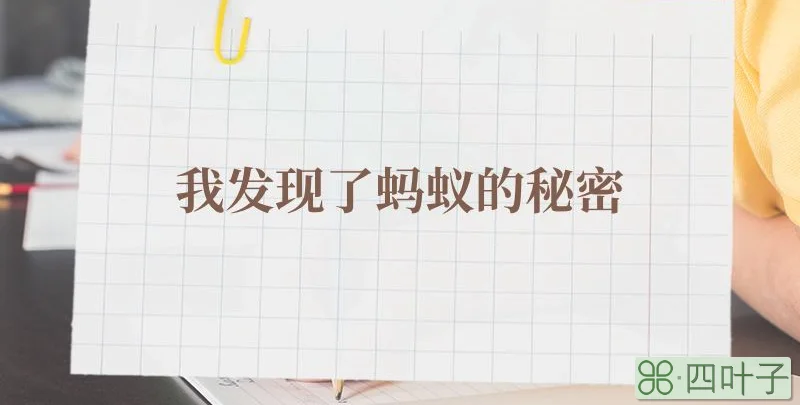 我发现了蚂蚁的秘密
四叶子